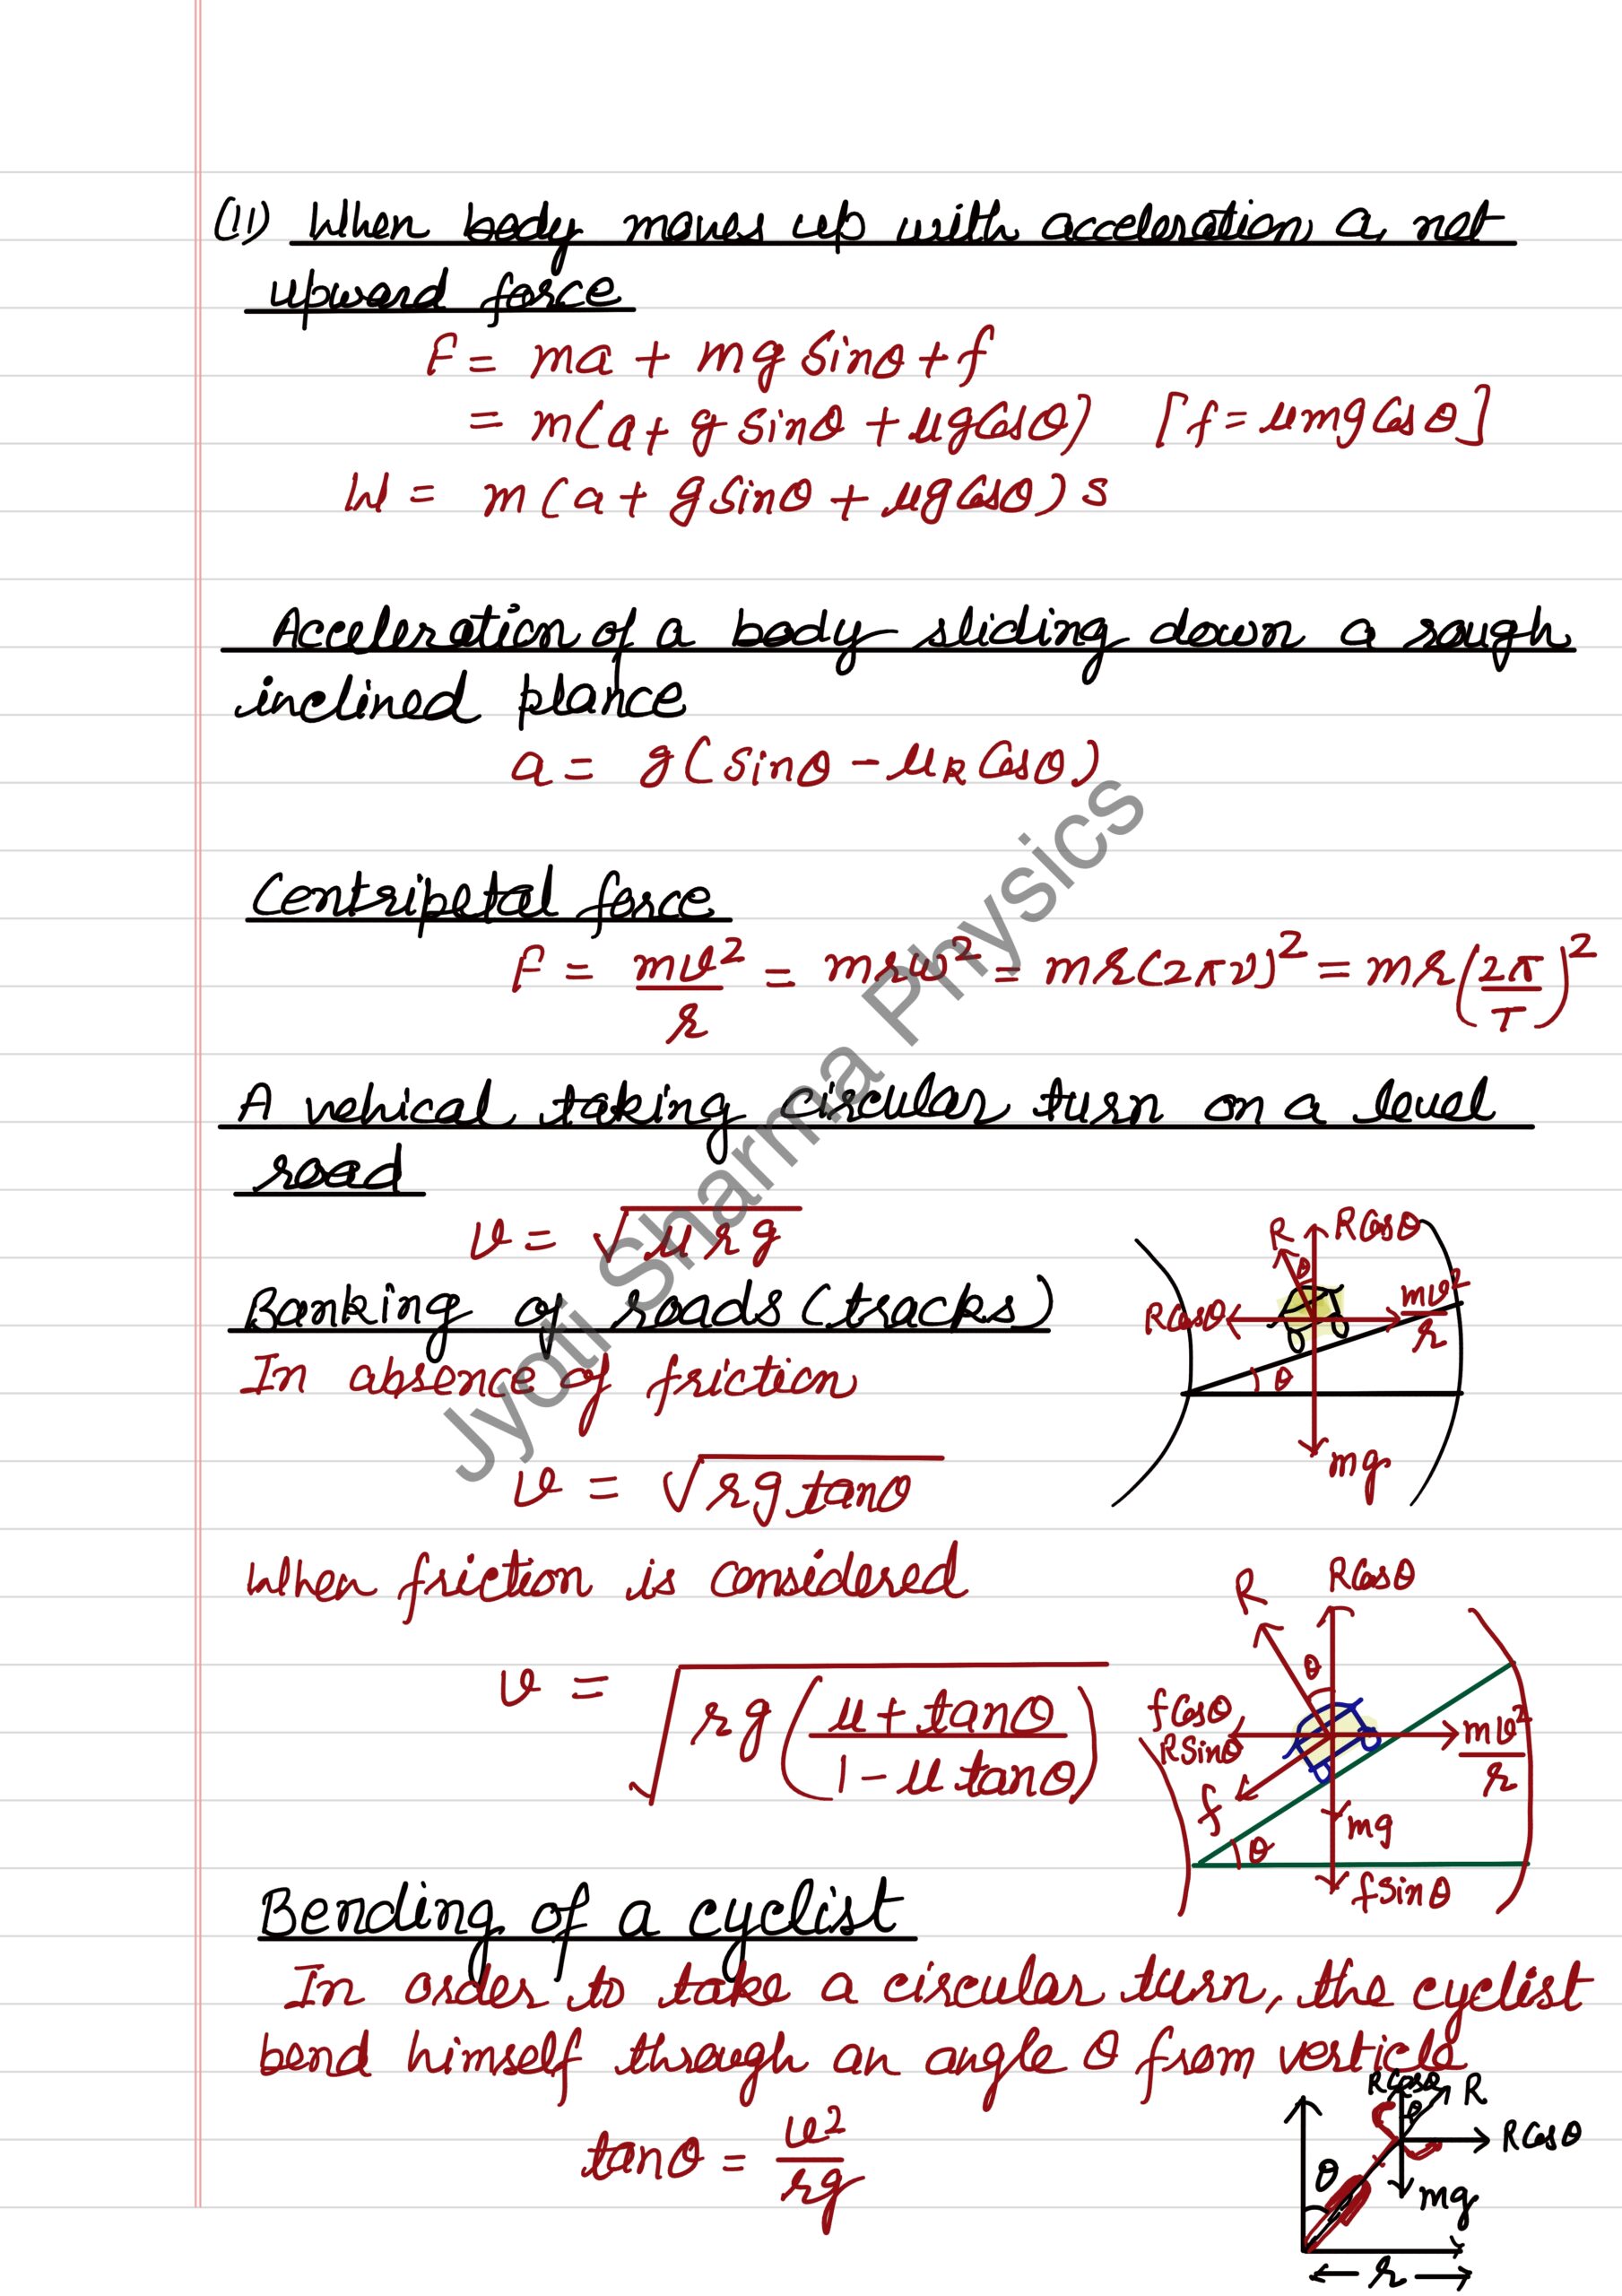 (11) When body moves up with acceleration a, net
upward force
F = ma + mg Sinθ + f
= m(a + g sinθ + μgCosθ) [f = μmgCosθ]
W = m(a + gSinθ + μgCosθ) s
Acceleration of a body sliding down a rough
inclined plance
a = g(Sinθ - μ_k Cosθ)
Centripetal force
F = mv²/r = mrω² = mr(2πν)² = mr(2π/T)²
A vehical taking circular turn on a level
road
v = √μrg
R RCosθ
Banking of roads (tracks)
θ
RCosθ mv²/r
In absence of friction
θ
mg
v = √rg tanθ
When friction is considered
R RCosθ
θ
v = √rg((μ + tanθ)/(1 - μ tanθ))
fCosθ
RSinθ mv²/r
f
mg
θ
fSinθ
Bending of a cyclist
In order to take a circular turn, the cyclist
bend himself through an angle θ from verticle
RCosθ R
θ
tanθ = v²/rg
RCosθ
θ
mg
r
Jyoti Sharma Physics